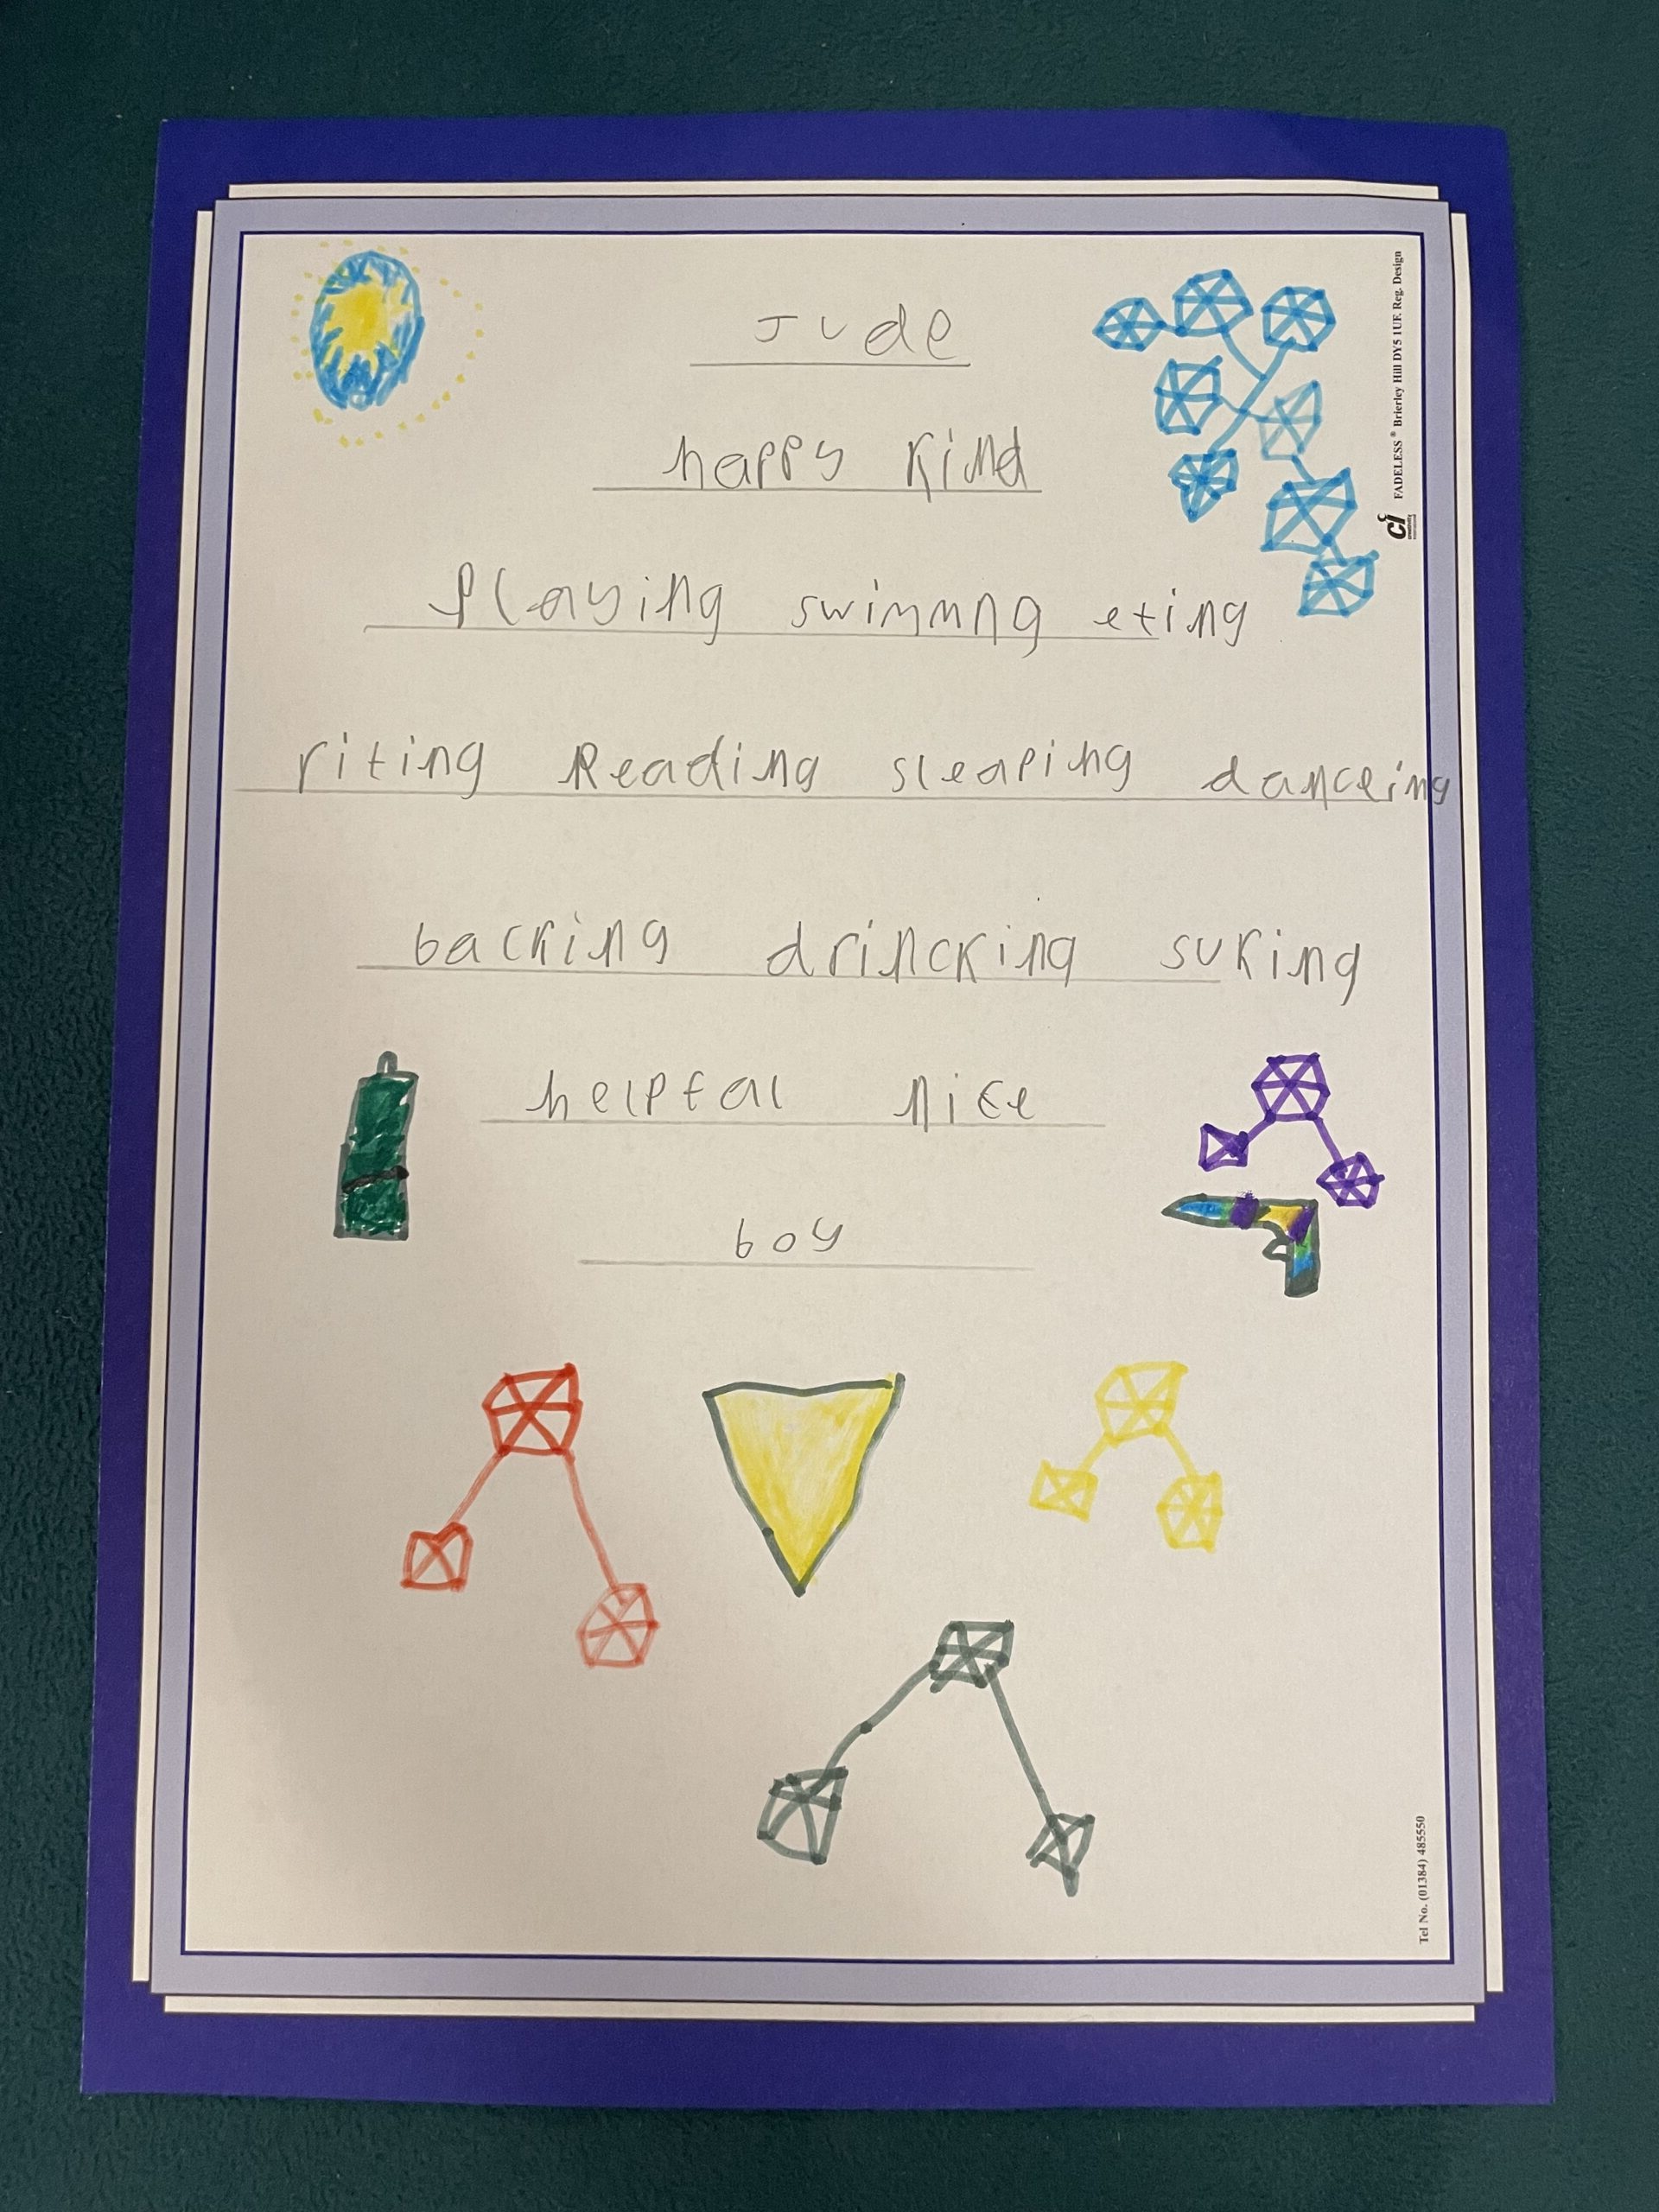 Jude
happy kind
Playing swimmng eting
riting Reading sleaping danceing
backing drincking suking
helpfal nice
boy
FADELESS® Brierley Hill DY5 1UF. Reg. Design
ci
Tel No. (01384) 485550